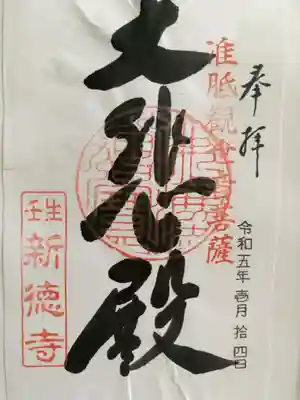 奉拝
令和五年壱月拾四日
准胝観世音菩薩
大悲殿
壬生
新徳寺